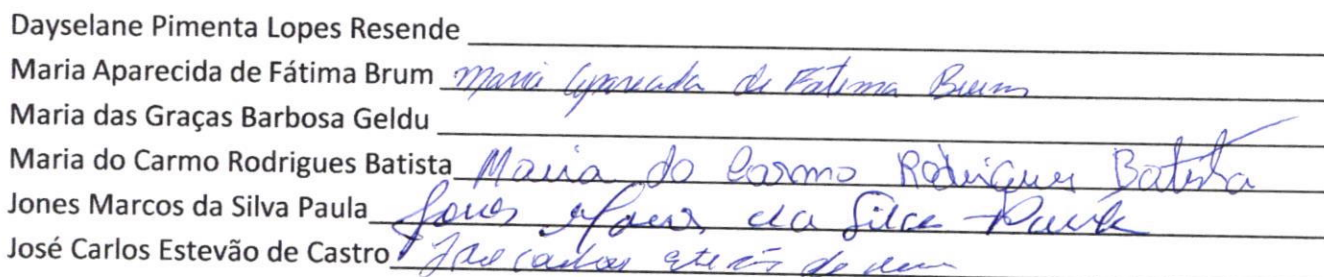 Dayselane Pimenta Lopes Resende
Maria Aparecida de Fátima Brum Maria Aparecida de Fatima Brum
Maria das Graças Barbosa Geldu
Maria do Carmo Rodrigues Batista Maria do Carmo Rodrigues Batista
Jones Marcos da Silva Paula Jones Marcos da Silva Paula
José Carlos Estevão de Castro José Carlos